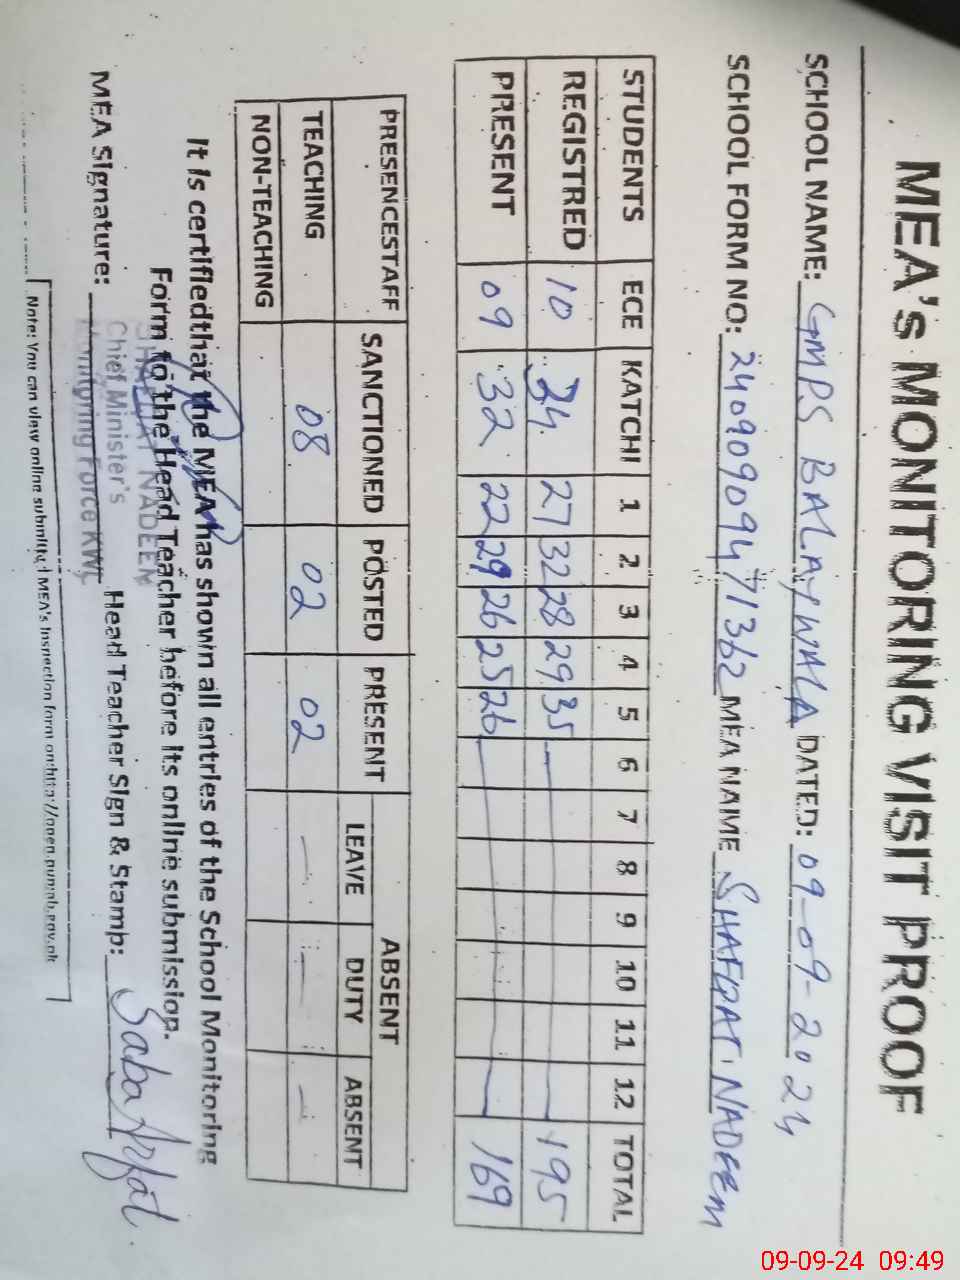 MEA's MONITORING VISIT PROOF
SCHOOL NAME: GMPS BALAYWALA DATED: 09-09-2024
SCHOOL FORM NO: 2409090947 71362 MEA NAME SHAFQAT NADEEM
STUDENTS ECE KATCHI 1 2 3 4 5 6 7 8 9 10 11 12 TOTAL
REGISTRED 10 34 27 32 28 29 35 195
PRESENT 09 32 22 29 26 25 26 169
PRESENCESTAFF SANCTIONED POSTED PRESENT ABSENT
LEAVE DUTY ABSENT
TEACHING 08 02 02 — — —
NON-TEACHING
It is certifiedthat the MEA has shown all entries of the School Monitoring
Form to the Head Teacher before its online submission.
SHAFQAT NADEEM
Chief Minister's
Monitoring Force KWL
MEA Signature: Head Teacher Sign & Stamp: Saba Arfat
Note: You can view online submitted MEA's Inspection form on:http://open.punjab.gov.pk
09-09-24 09:49